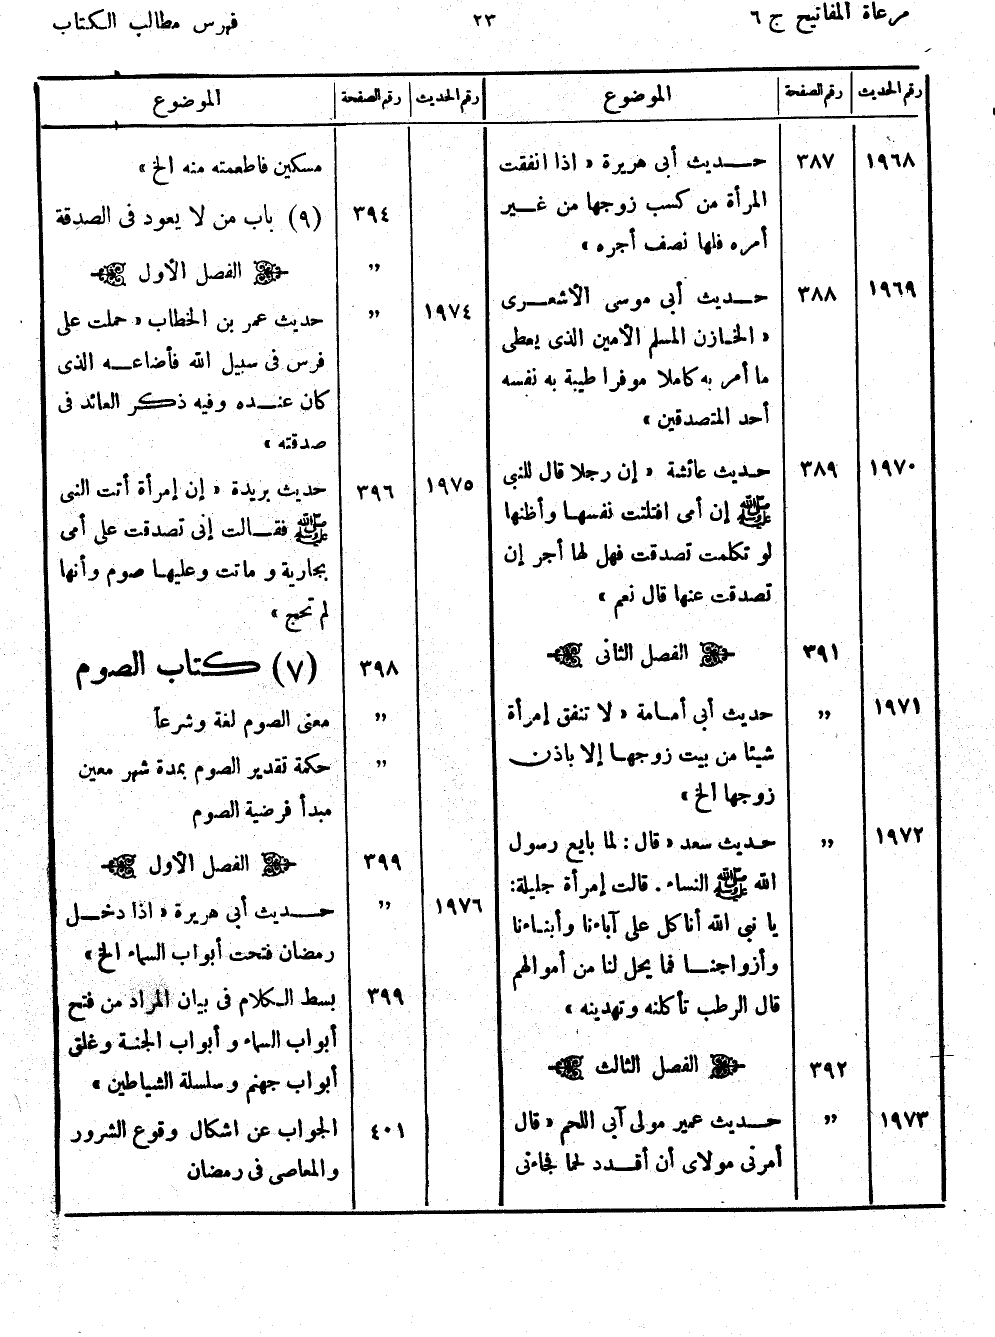 مرعاة المفاتيح ج ٦
٢٣
فهرس مطالب الكتاب
رقم الحديث رقم الصفحة الموضوع
١٩٦٨ ٣٨٧ حـــديث أبى هريرة « اذا انفقت
المرأة من كسب زوجها من غـــير
أمره فلها نصف أجره »
١٩٦٩ ٣٨٨ حـــديث أبي موسى الأشعـــرى
« الخـازن المسلم الأمين الذى يعطى
ما أمر به كاملا موفرا طيبة به نفسه
أحد المتصدقين »
١٩٧٠ ٣٨٩ حـديث عائشة « إن رجلا قال للنبى
ﷺ إن أمى افتلتت نفسهـا وأظنها
لو تكلمت تصدقت فهل لها أجر إن
تصدقت عنها قال نعم »
٣٩١ الفصل الثانى
١٩٧١ ,, حديث أبي أمـامة « لا تنفق إمرأة
شيئا من بيت زوجهـا إلا باذن
زوجها الخ »
١٩٧٢ ,, حـديث سعد « قال : لما بايع رسول
الله ﷺ النساء . قالت إمرأة جليلة :
يا نبي الله أنا كل على آباءنا وأبنـاءنا
وأزواجنـــا فما يحل لنا من أموالهم
قال الرطب تأكلنه وتهدينه »
٣٩٢ الفصل الثالث
١٩٧٣ ,, حـــديث عمير مولى آبى اللحم « قال
أمرنى مولاى أن أقـــدد لحما فجاءنى
رقم الحديث رقم الصفحة الموضوع
مسكين فاطعمته منه الخ »
٣٩٤ (٩) باب من لا يعود فى الصدقة
,, الفصل الأول
١٩٧٤ ,, حديث عمر بن الخطاب « حملت على
فرس فى سبيل الله فأضاعـــه الذى
كان عنـــده وفيه ذكر العائد فى
صدقته »
١٩٧٥ ٣٩٦ حديث بريدة « إن إمرأة أتت النبى
ﷺ فقـــالت إنى تصدقت على أمى
بجارية و ماتت وعليهـا صوم وأنها
لم تحج »
٣٩٨ (٧) كتاب الصوم
,, معنى الصوم لغة وشرعاً
,, حكمة تقدير الصوم بمدة شهر معين
مبدأ فرضية الصوم
٣٩٩ الفصل الأول
١٩٧٦ ,, حـــديث أبي هريرة « اذا دخـــل
رمضان فتحت أبواب السماء الخ »
٣٩٩ بسط الكلام فى بيان المراد من فتح
أبواب السماء و أبواب الجنـة وغلق
أبواب جهنم و سلسلة الشياطين »
٤٠١ الجواب عن اشكال وقوع الشرور
والمعاصى فى رمضان